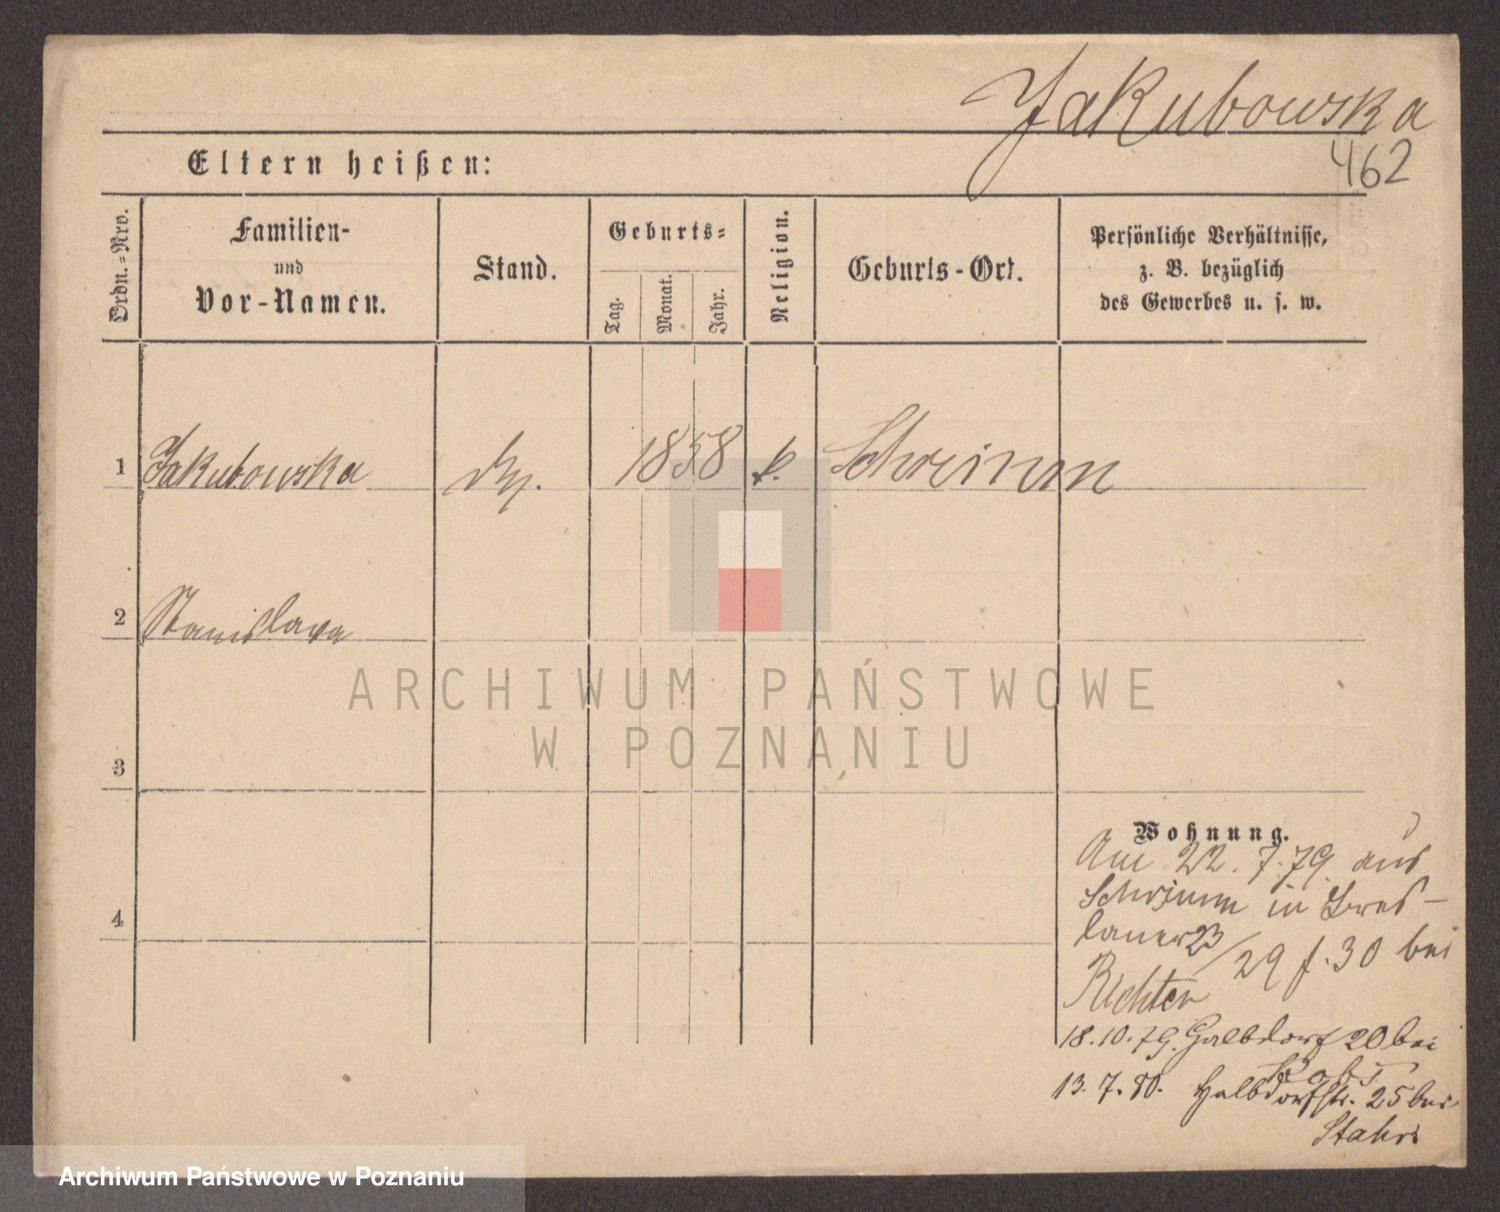 Jakubowska
462
Eltern heißen:
Ordn.-Nro.
Familien-
und
Vor-Namen.
Stand.
Geburts-
Tag.
Monat.
Jahr.
Religion.
Geburts-Ort.
Persönliche Verhältnisse,
z. B. bezüglich
des Gewerbes u. s. w.
1 Jakubowska 1858 k. Schrimm
2 Stanislava
3
4
Wohnung.
Am 22. 7. 79. aus
Schrimm in Bres-
lauer 23
29 f. 30 bei
Richter
18. 10. 79. Halbdorf 20 bei
13. 7. 80. Halbdorfstr. 25 bei
ARCHIWUM PAŃSTWOWE
W POZNANIU
Archiwum Państwowe w Poznaniu